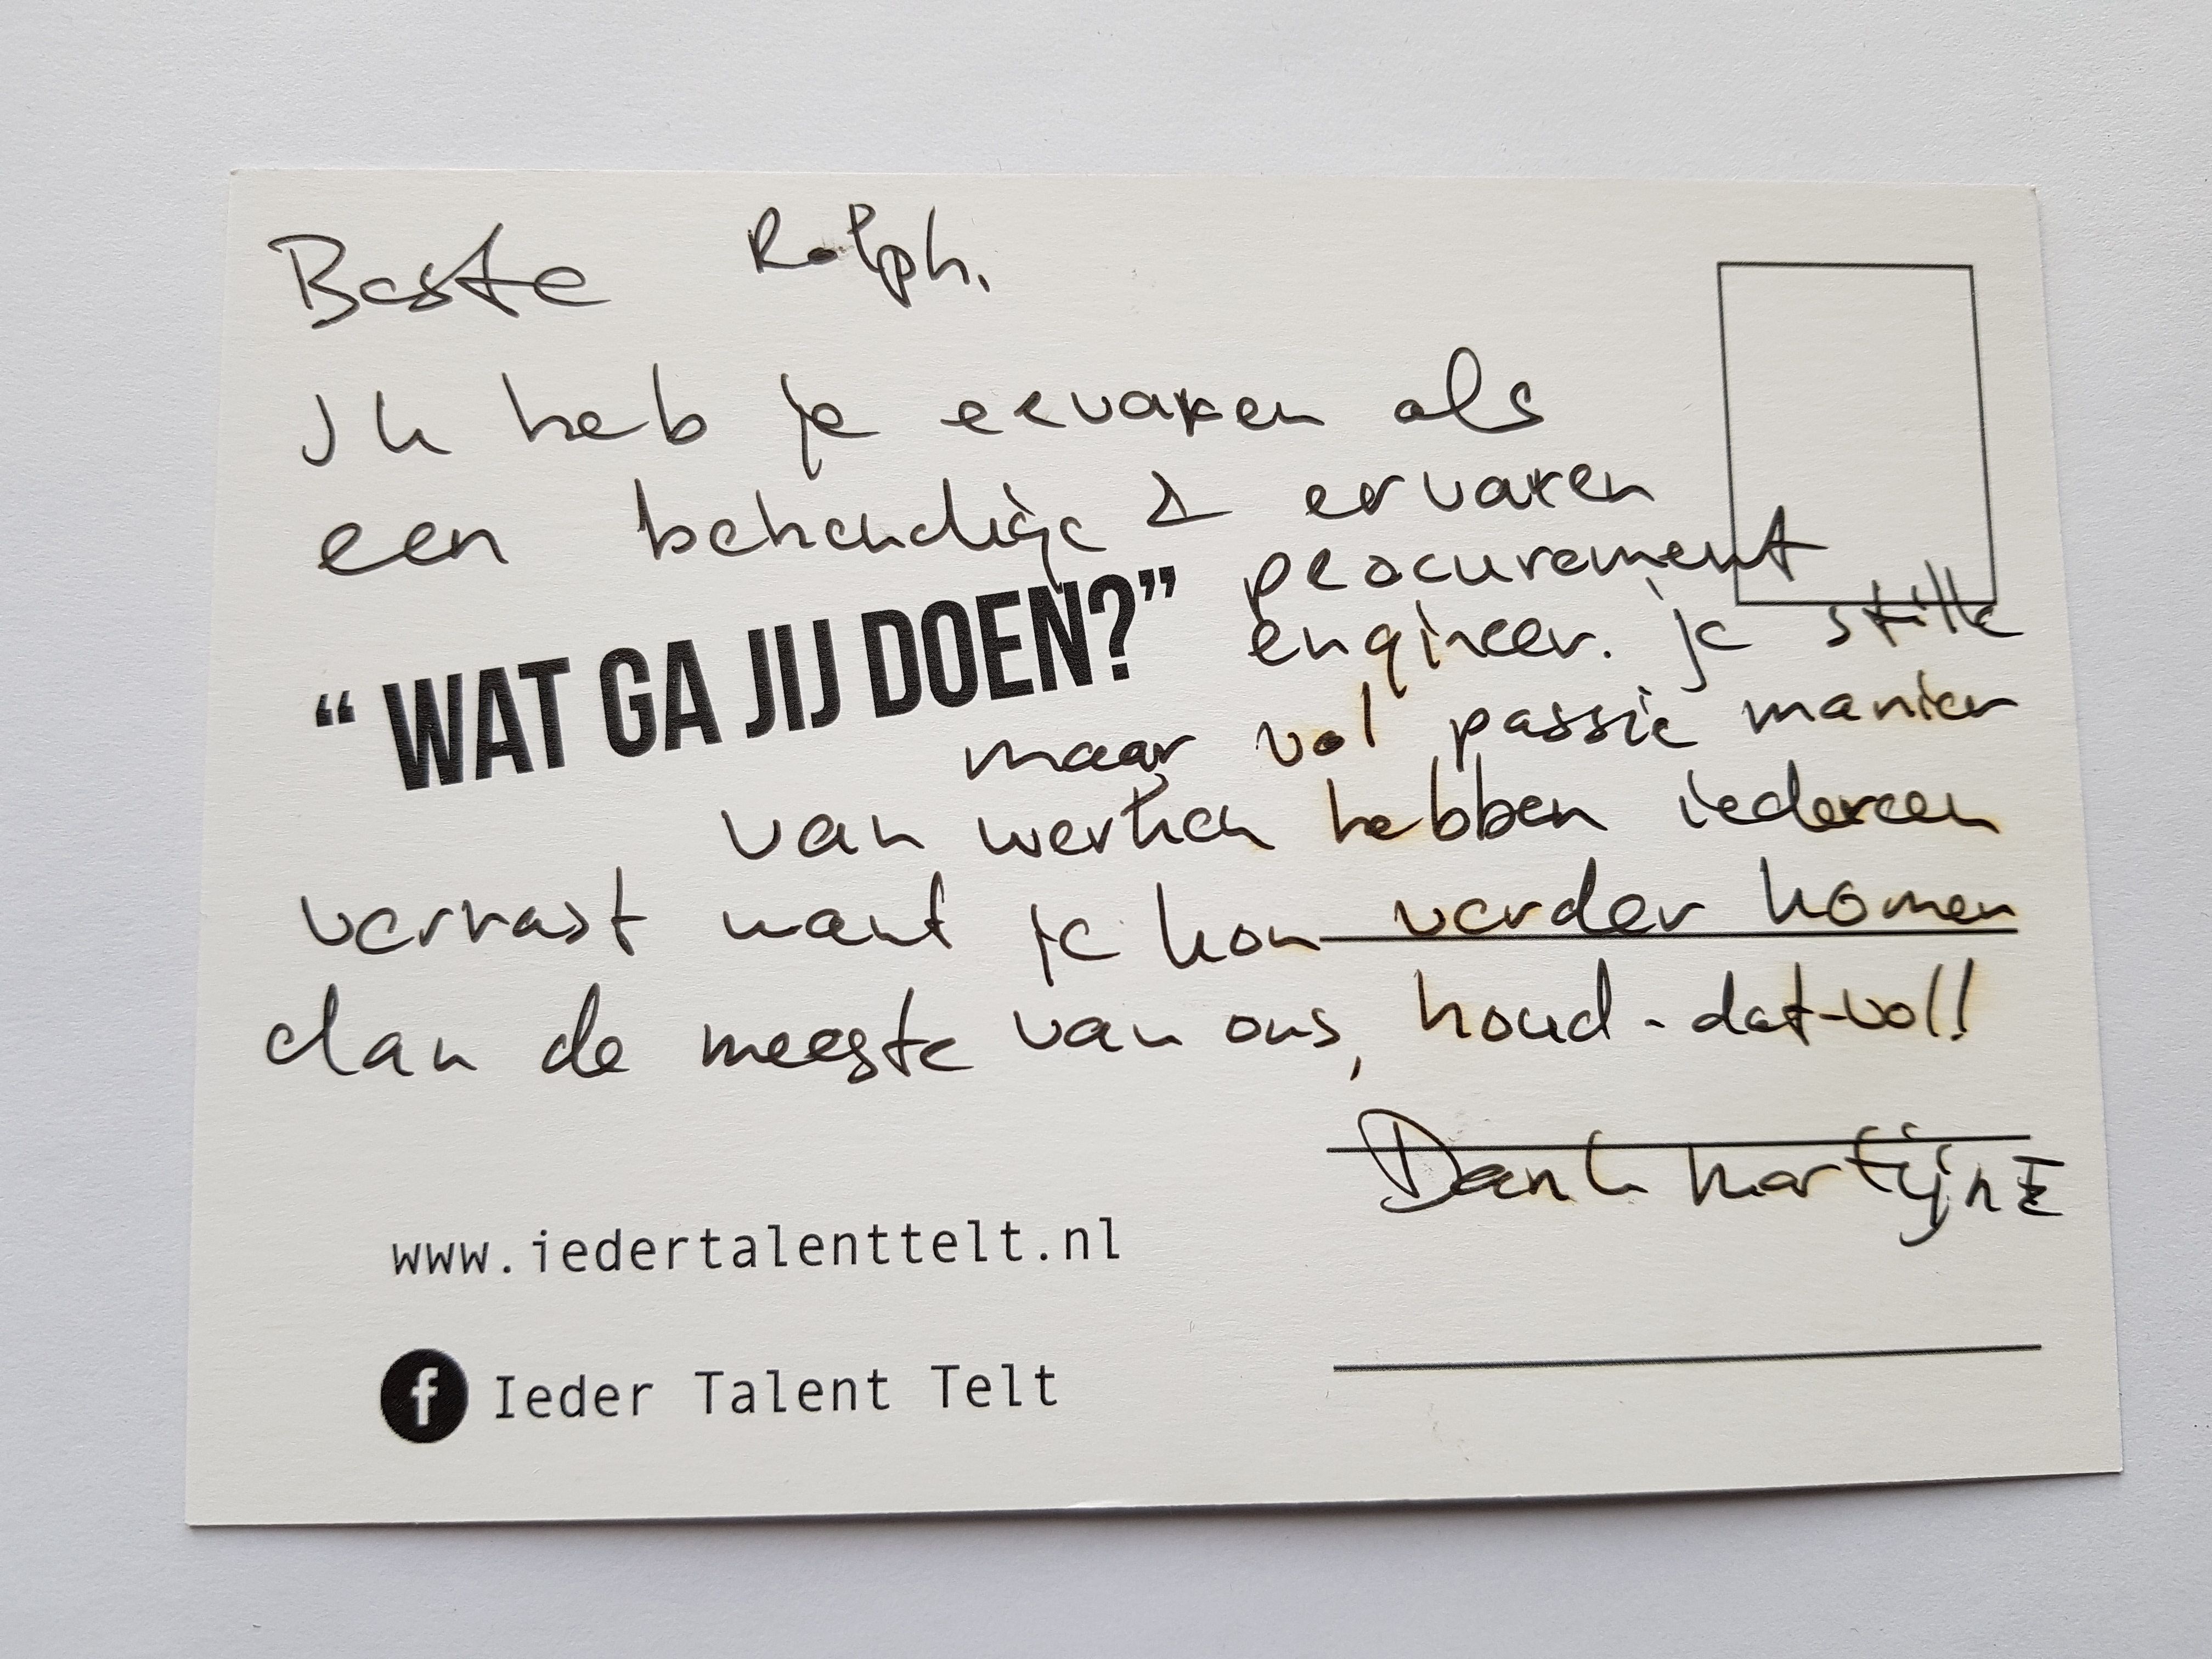 Beste Ralph.
Ik heb je ervaren als
een behendige & ervaren
procurement
"WAT GA JIJ DOEN?"
engineer. je stille
maar vol passie manier
van werken hebben iedereen
verrast want je kon verder komen
dan de meeste van ons, houd-dat-vol!
Dank Martijn E
www.iedertalenttelt.nl
f Ieder Talent Telt